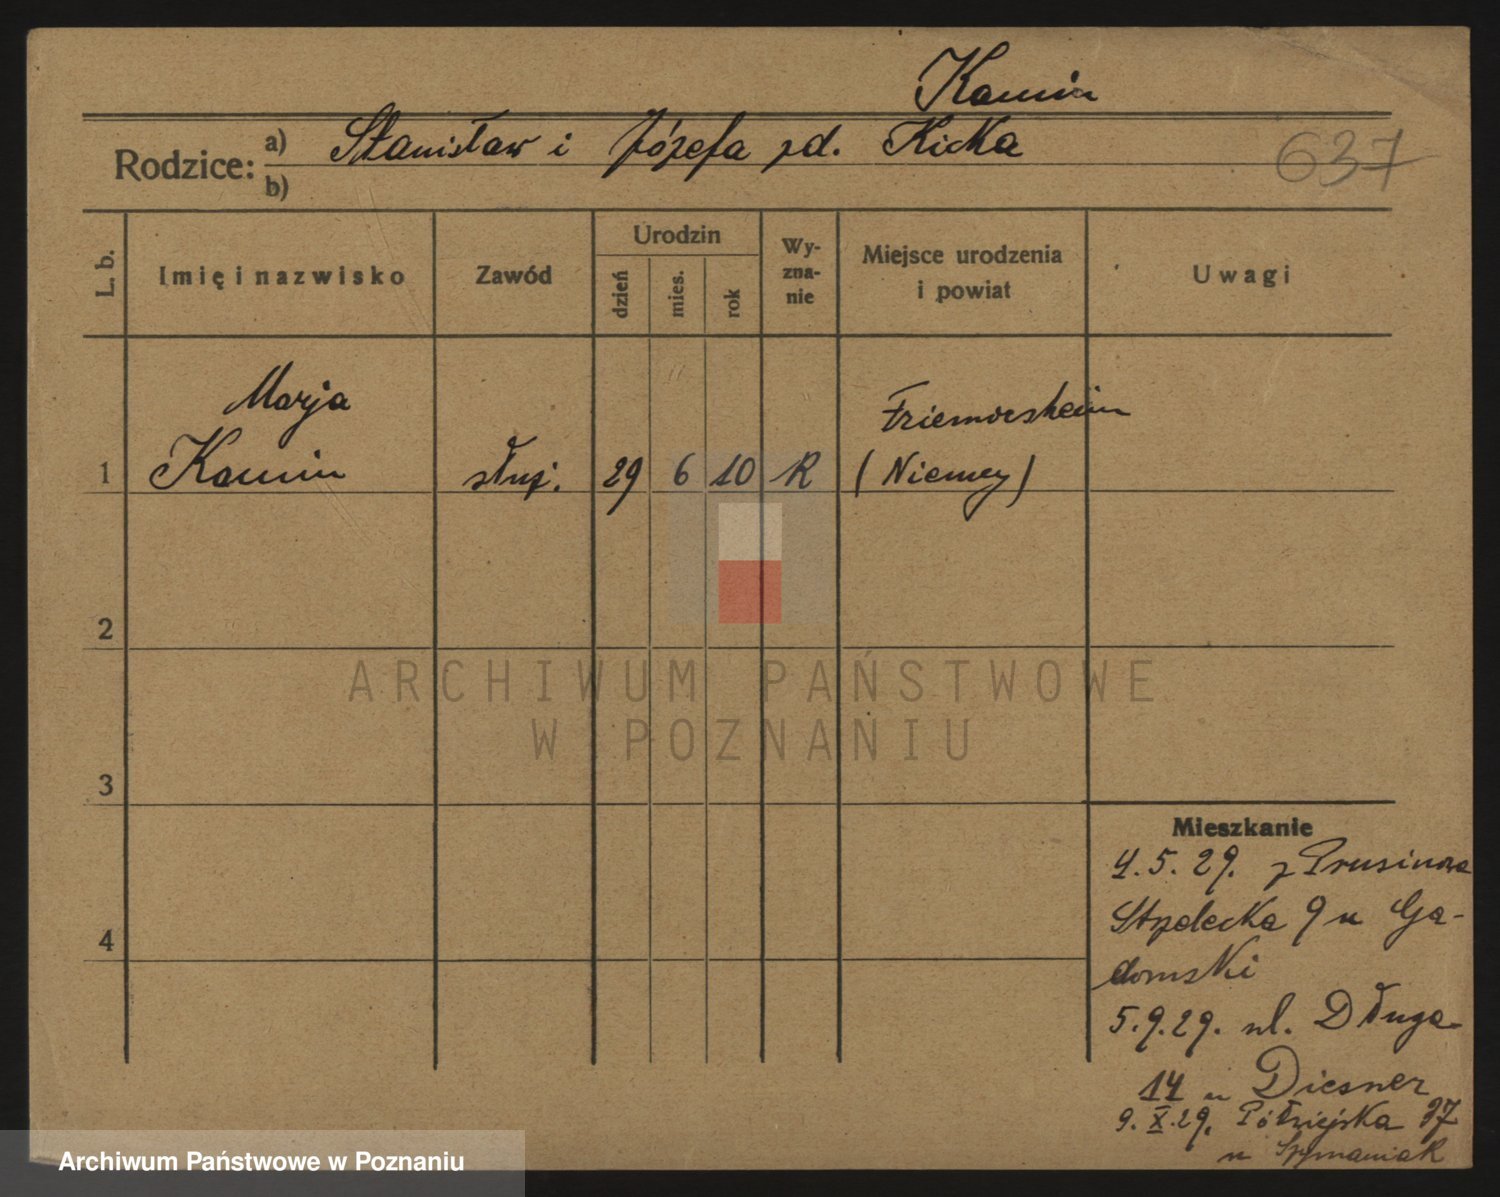 Kamin
Rodzice: a) Stanisław i Józefa zd. Kicka
b)
637
L. b.
Imię i nazwisko
Zawód
Urodzin
dzień
mies.
rok
Wy-
zna-
nie
Miejsce urodzenia
i powiat
Uwagi
Marja
1 Kamin służ. 29 6 10 R
Friemersheim
(Niemcy)
2
3
4
ARCHIWUM PAŃSTWOWE
W POZNANIU
Mieszkanie
4.5.29. z Prusinowa
Strzelecka 9 u Ga-
domski
5.9.29. ul. Długa
14 u Diesner
9.X.29. Półwiejska 37
u Szymaniak
Archiwum Państwowe w Poznaniu